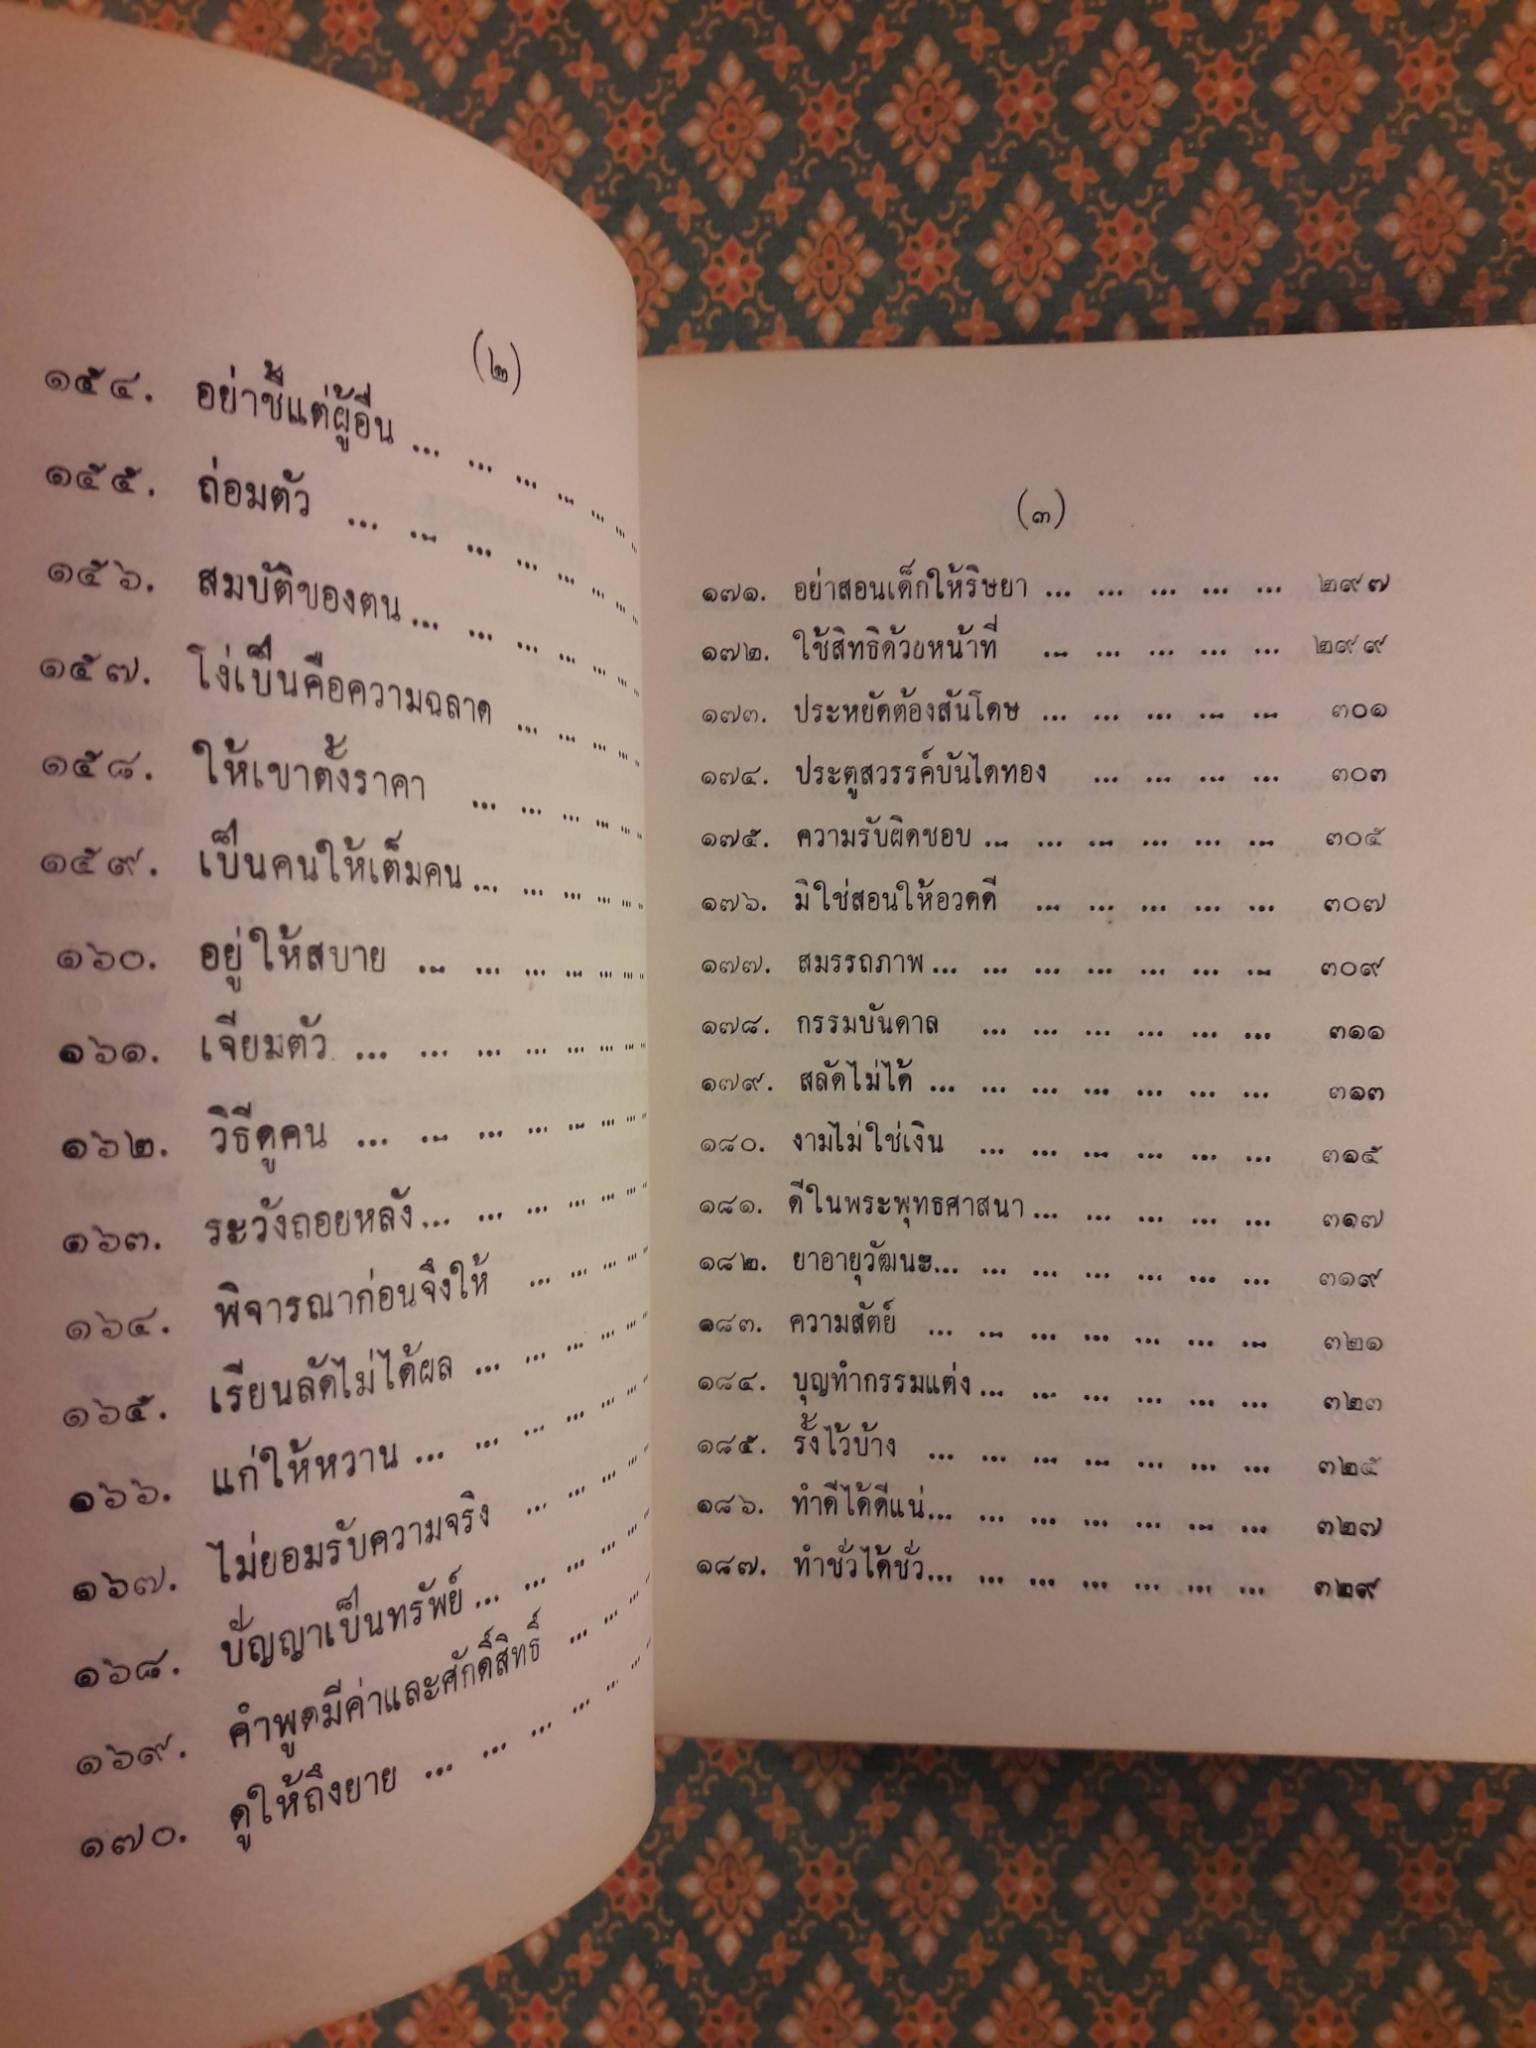 (๒)
๑๕๔. อย่าชี้แต่ผู้อื่น ... ... ... ... ... ...
๑๕๕. ถ่อมตัว ... ... ... ... ... ... ...
๑๕๖. สมบัติของตน ... ... ... ... ... ...
๑๕๗. โง่เป็นคือความฉลาด ... ... ... ...
๑๕๘. ให้เขาตั้งราคา ... ... ... ... ...
๑๕๙. เป็นคนให้เต็มคน ... ... ... ... ... ...
๑๖๐. อยู่ให้สบาย ... ... ... ... ... ... ...
๑๖๑. เจียมตัว ... ... ... ... ... ... ... ...
๑๖๒. วิธีดูคน ... ... ... ... ... ... ... ...
๑๖๓. ระวังถอยหลัง ... ... ... ... ... ...
๑๖๔. พิจารณาก่อนจึงให้ ... ... ... ... ...
๑๖๕. เรียนลัดไม่ได้ผล ... ... ... ... ... ...
๑๖๖. แก่ให้หวาน ... ... ... ... ... ... ...
๑๖๗. ไม่ยอมรับความจริง ... ... ... ... ...
๑๖๘. ปัญญาเป็นทรัพย์ ... ... ... ... ... ...
๑๖๙. คำพูดมีค่าและศักดิ์สิทธิ์ ... ... ... ...
๑๗๐. ดูให้ถึงยาย ... ... ... ... ... ...
(๓)
๑๗๑. อย่าสอนเด็กให้ริษยา ... ... ... ... ... ๒๙๗
๑๗๒. ใช้สิทธิด้วยหน้าที่ ... ... ... ... ... ๒๙๙
๑๗๓. ประหยัดต้องสันโดษ ... ... ... ... ... ๓๐๑
๑๗๔. ประตูสวรรค์บันไดทอง ... ... ... ... ๓๐๓
๑๗๕. ความรับผิดชอบ ... ... ... ... ... ... ๓๐๕
๑๗๖. มิใช่สอนให้อวดดี ... ... ... ... ... ๓๐๗
๑๗๗. สมรรถภาพ ... ... ... ... ... ... ... ๓๐๙
๑๗๘. กรรมบันดาล ... ... ... ... ... ... ๓๑๑
๑๗๙. สลัดไม่ได้ ... ... ... ... ... ... ... ๓๑๓
๑๘๐. งามไม่ใช่เงิน ... ... ... ... ... ... ๓๑๕
๑๘๑. ดีในพระพุทธศาสนา ... ... ... ... ... ๓๑๗
๑๘๒. ยาอายุวัฒนะ ... ... ... ... ... ... ... ๓๑๙
๑๘๓. ความสัตย์ ... ... ... ... ... ... ... ๓๒๑
๑๘๔. บุญทำกรรมแต่ง ... ... ... ... ... ... ๓๒๓
๑๘๕. รั้งไว้บ้าง ... ... ... ... ... ... ... ๓๒๕
๑๘๖. ทำดีได้ดีแน่ ... ... ... ... ... ... ... ๓๒๗
๑๘๗. ทำชั่วได้ชั่ว ... ... ... ... ... ... ... ๓๒๙